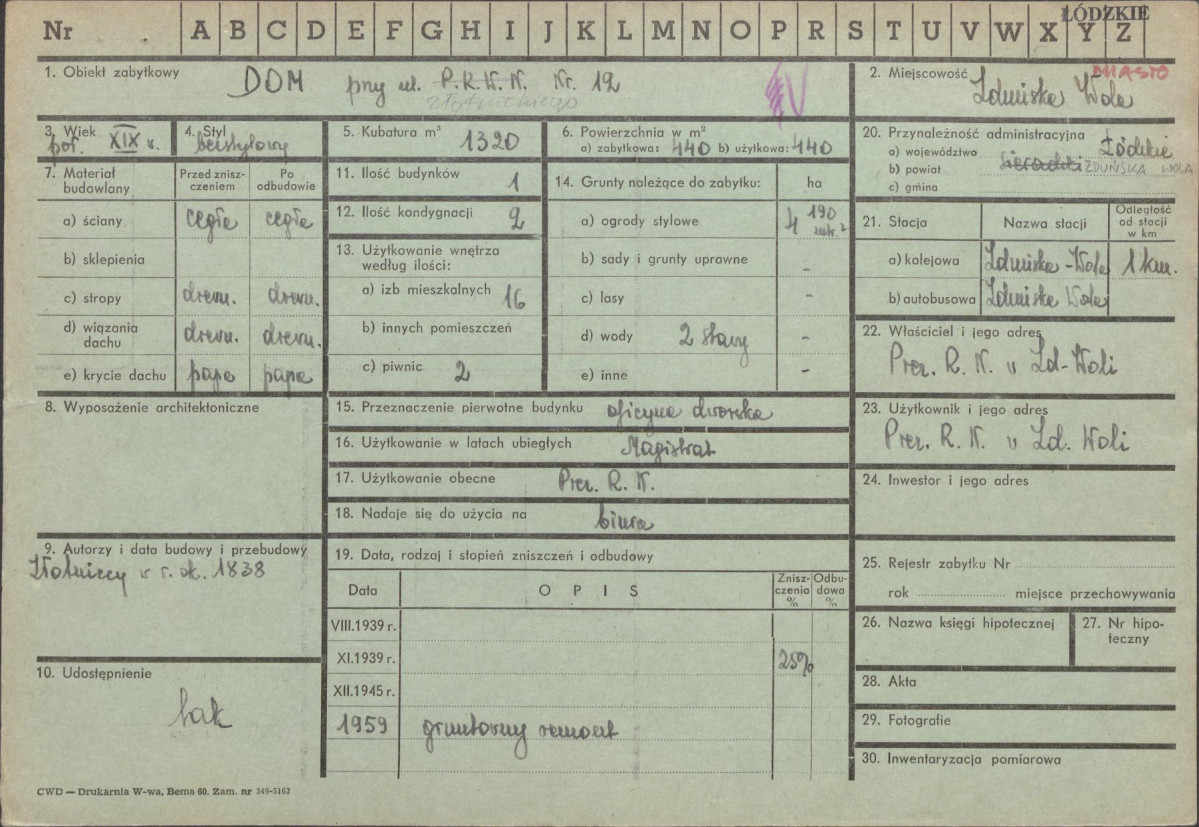 ŁÓDZKIE
Nr A B C D E F G H I J K L M N O P R S T U V W X Y Z
1. Obiekt zabytkowy DOM przy ul. P.K.W.N. Nr. 12
Złotnickiego
2. Miejscowość MIASTO
Zduńska Wola
3. Wiek
poł. XIX w.
4. Styl
bezstylowy
5. Kubatura m³ 1320
6. Powierzchnia w m²
a) zabytkowa: 440 b) użytkowa: 440
7. Materiał budowlany
Przed znisz-
czeniem
Po
odbudowie
a) ściany cegła cegła
b) sklepienia
c) stropy drewn. drewn.
d) wiązania
dachu drewn. drewn.
e) krycie dachu papa papa
8. Wyposażenie architektoniczne
9. Autorzy i data budowy i przebudowy
Złotniccy w r. ok. 1838
10. Udostępnienie
tak
11. Ilość budynków 1
12. Ilość kondygnacji 2
13. Użytkowanie wnętrza
według ilości:
a) izb mieszkalnych 16
b) innych pomieszczeń
c) piwnic 2
14. Grunty należące do zabytku: ha
a) ogrody stylowe 4 190 mtr.²
b) sady i grunty uprawne -
c) lasy -
d) wody 2 stawy -
e) inne -
15. Przeznaczenie pierwotne budynku oficyna dworska
16. Użytkowanie w latach ubiegłych Magistrat
17. Użytkowanie obecne Prez. R. N.
18. Nadaje się do użycia na biura
19. Data, rodzaj i stopień zniszczeń i odbudowy
Data OPIS
Znisz-
czenia
%
Odbu-
dowa
%
VIII.1939 r.
XI.1939 r. 25%
XII.1945 r.
1959 gruntowny remont
20. Przynależność administracyjna
a) województwo Łódzkie
b) powiat Sieradzki ZDUŃSKA WOLA
c) gmina
21. Stacja Nazwa stacji
Odległość
od stacji
w km
a) kolejowa Zduńska-Wola 1 km.
b) autobusowa Zduńska Wola
22. Właściciel i jego adres
Prez. R. N. w Zd-Woli
23. Użytkownik i jego adres
Prez. R. N. w Zd. Woli
24. Inwestor i jego adres
25. Rejestr zabytku Nr
rok miejsce przechowywania
26. Nazwa księgi hipotecznej
27. Nr hipo-
teczny
28. Akta
29. Fotografie
30. Inwentaryzacja pomiarowa
CWD — Drukarnia W-wa, Bema 60. Zam. nr 349-5162